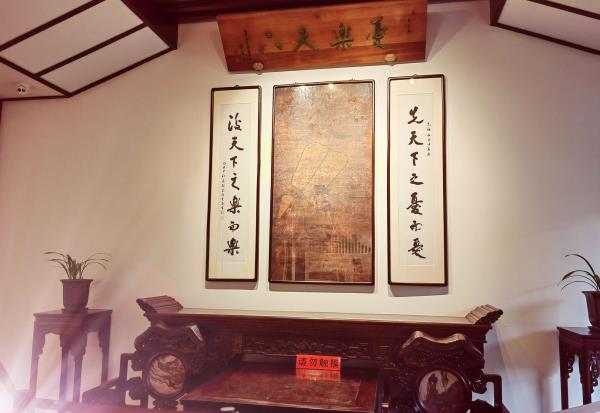 憂樂天下
先天下之憂而憂
後天下之樂而樂
请勿触摸